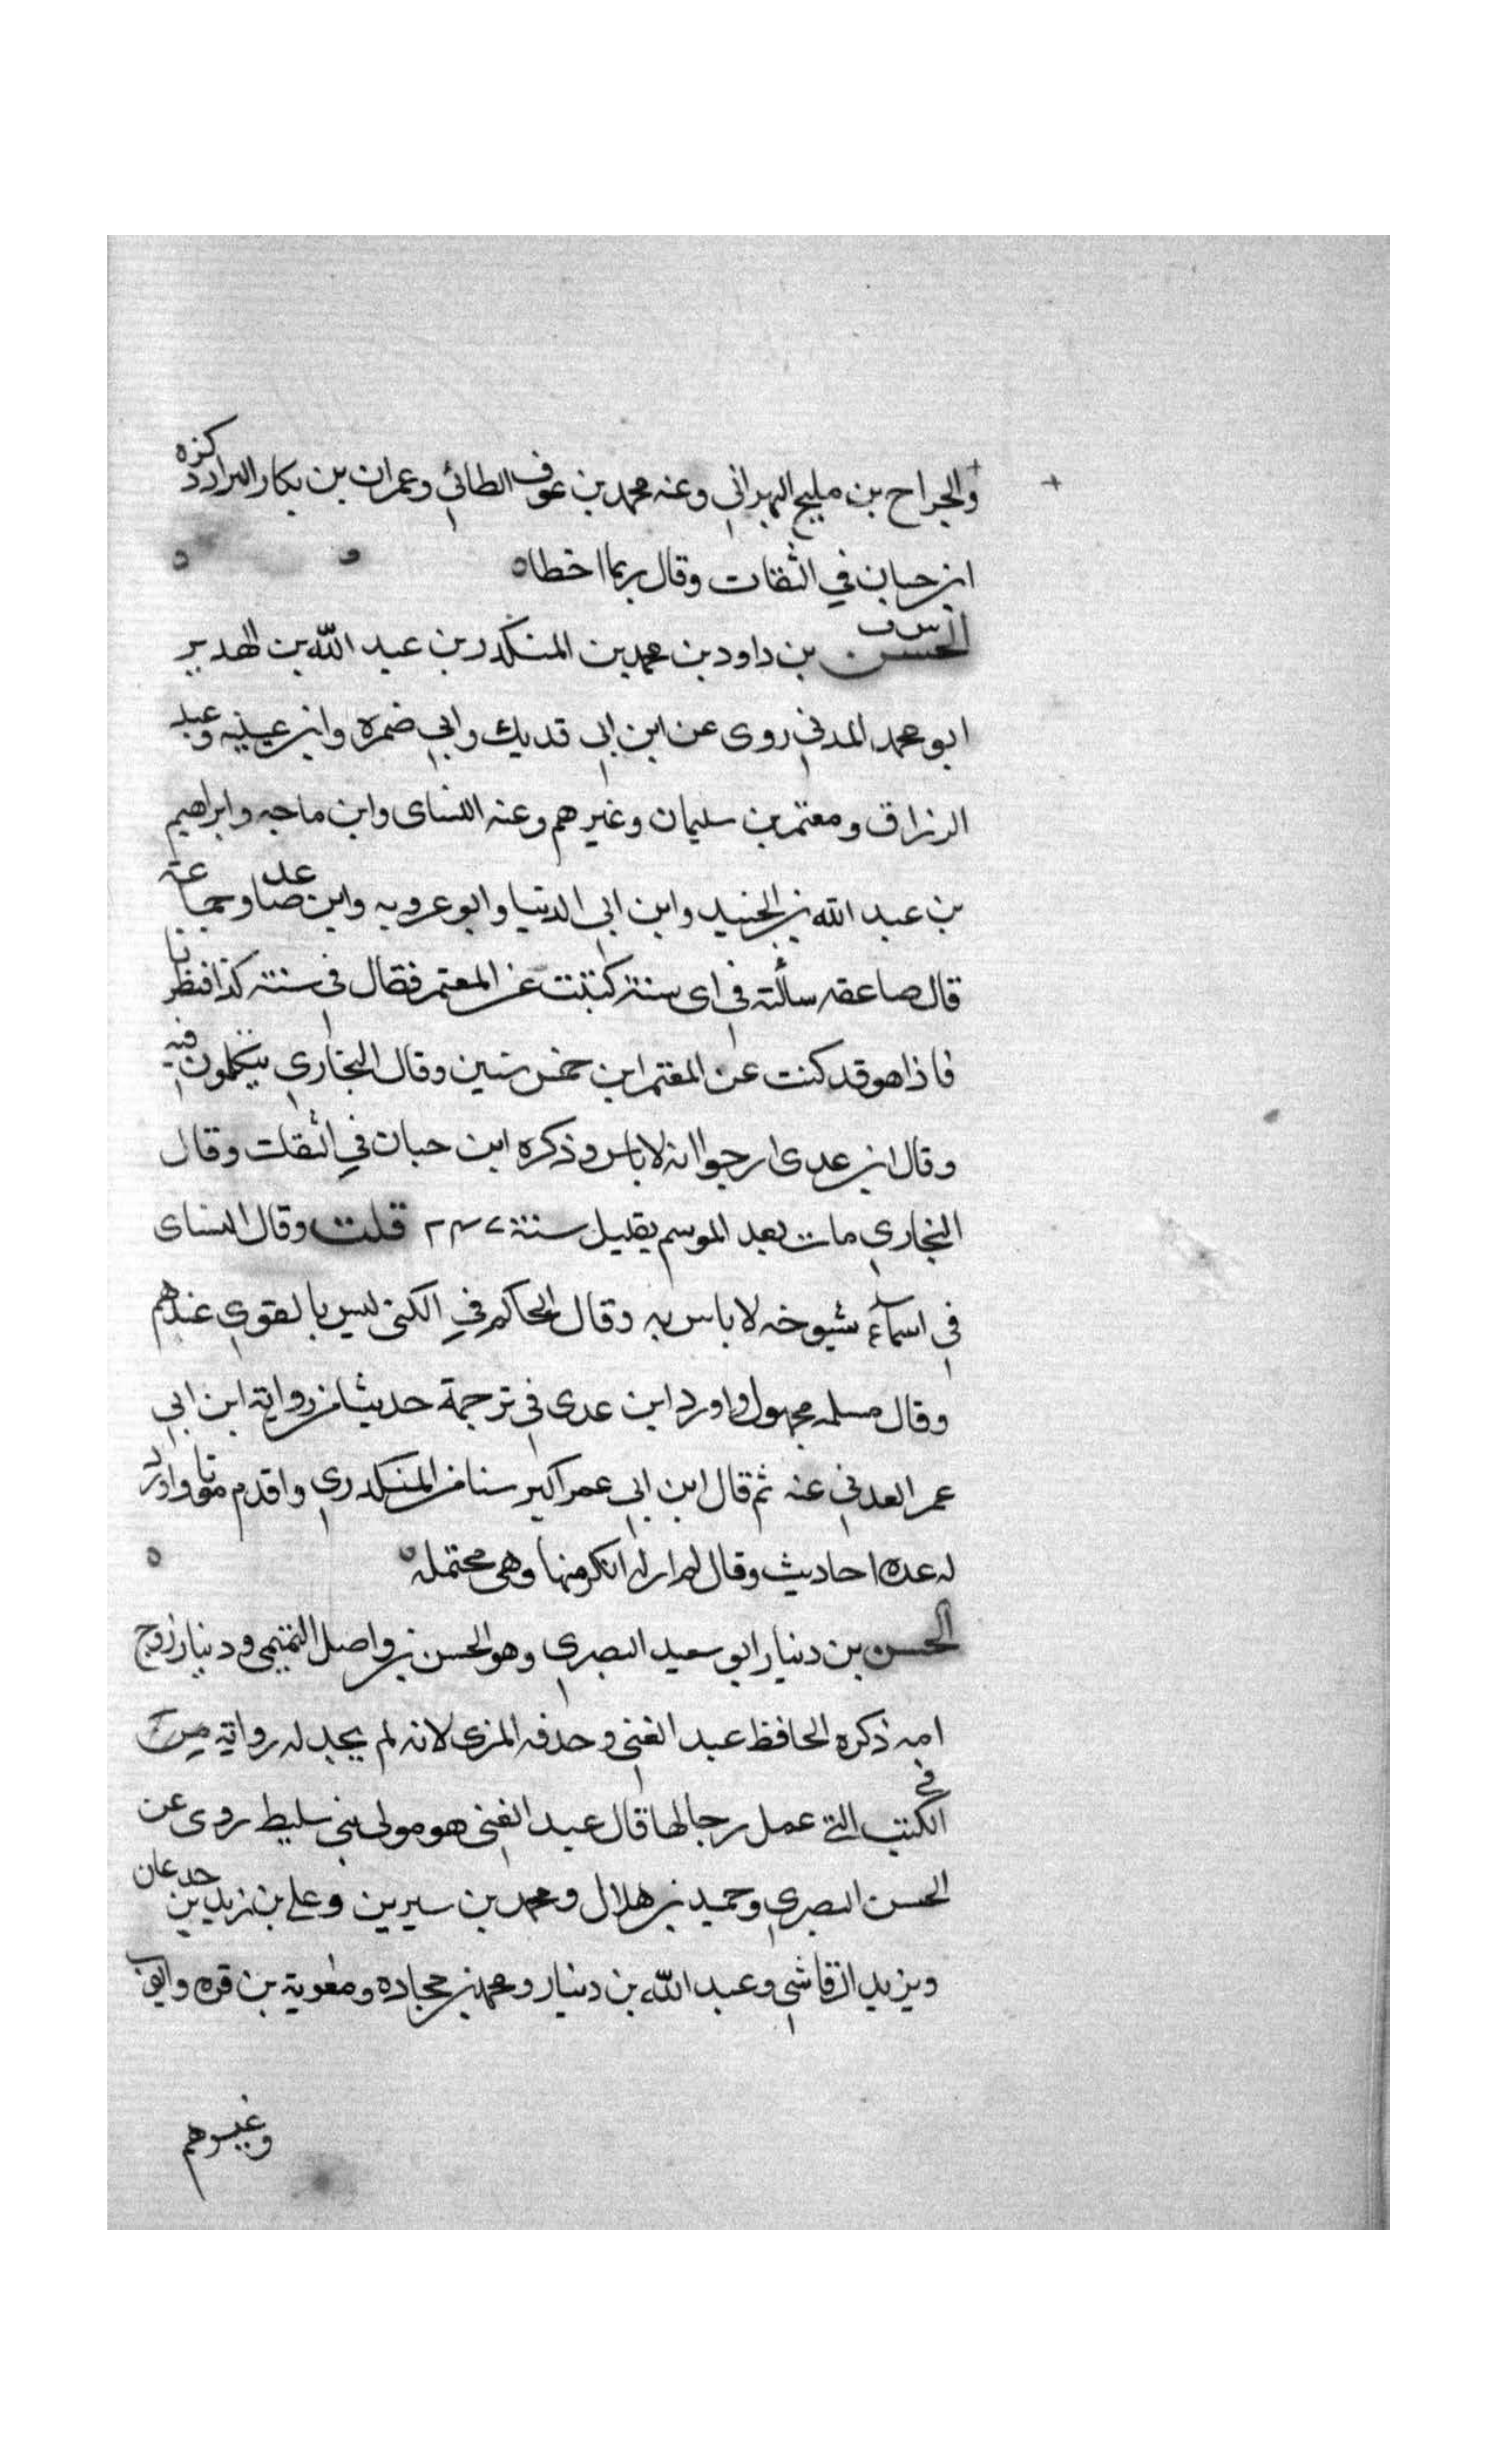 والجراح بن مليح البهراني وعنه محمد بن عوف الطائي وعمران بن بكار البراد ذكره
ابن حبان في الثقات وقال ربما اخطاه
س ق
الحسن بن داود بن محمد بن المنكدر بن عبد الله بن الهدير
ابو محمد المدني روى عن ابن ابي فديك وابي ضمره وابن عيينه وعبد
الرزاق ومعتمر بن سليمان وغيرهم وعنه النساى وابن ماجه وابراهيم
بن عبد الله بن الجنيد وابن ابي الدنيا وابو عروبه وابن صاعد وجماعة
قال صاعقه سألته في اى سنة كتبت عن المعتمر فقال في سنة كذا فنظرنا
فاذا هو قد كتب عن المعتمر ابن خمس سنين وقال البخاري يتكلمون فيه
وقال ابن عدى ارجوا انه لا باس وذكره ابن حبان في الثقات وقال
البخاري مات بعد الموسم بقليل سنة ٢٤٧ قلت وقال النساى
في اسماء شيوخه لا باس به وقال الحاكم في الكنى ليس بالقوي عندهم
وقال مسلمه مجهول واورد ابن عدى في ترجمة حديثا من رواية ابن ابي
عمر العدني عنه ثم قال ابن ابي عمر اكبر سنا من المنكدري واقدم موتا واورد
له عده احاديث وقال لم ار له انكر منها وهي محتمله
الحسن بن دينار ابو سعيد البصري وهو الحسن بن واصل التميمي ودينار زوج
امه ذكره الحافظ عبد الغني وحذفه المزى لانه لم يجد له رواية
في الكتب التي عمل رجالها قال عبد الغني هو مولى بني سليط روى عن
الحسن البصري وحميد بن هلال ومحمد بن سيرين وعلي بن زيد بن جدعان
ويزيد الرقاشي وعبد الله بن دينار ومحمد بن جحاده ومعوية بن قره وايوب
وغيرهم